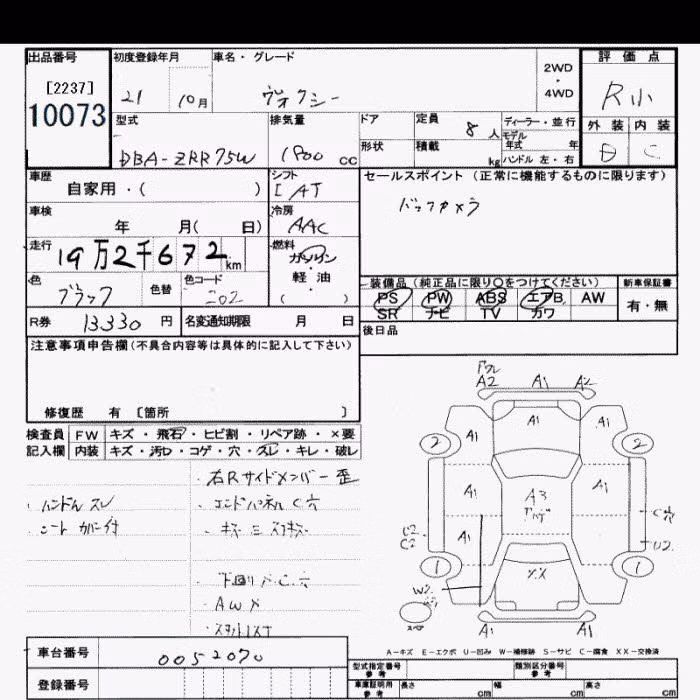 出品番号 初度登録年月 車名・グレード 2WD・4WD 評価点
[2237] 21 10月 ヴォクシー R小
10073 型式 排気量 ドア 定員 8人 ディーラー・並行 外装 内装
モデル年式 年
DBA-ZRR75W 1800 cc 形状 積載 kg ハンドル 左・右 C
車歴 シフト セールスポイント(正常に機能するものに限ります)
自家用・( ) I AT バックカメラ
車検 冷房
年 月( 日) AAC
走行 燃料
19万2千672km ガソリン・軽油
( )
色 色替 色コード 装備品(純正品に限り〇をつけてください) 新車保証書
ブラック 202 PS PW ABS エアB AW 有・無
SR ナビ TV カワ
R券 13330円 名変通知期限 月 日 後日品
注意事項申告欄(不具合内容等は具体的に記入して下さい)
修復歴 有 〔箇所 〕
検査員 FW キズ・飛石・ヒビ割・リペア跡・×要
記入欄 内装 キズ・汚レ・コゲ・穴・スレ・キレ・破レ
・右Rサイドメンバー歪
・ハンドルスレ ・エンドパネルC穴
・シートカバー付
・下回りC穴
・AW×
A2 A1 A2
A1 A1 A1
2 2
A1 A3 A1
A1
C穴
U2
C2
1 XX 1
W2
A1 A1
A-キズ E-エクボ U-凹み W-補修跡 S-サビ C-腐食 XX-交換済
車台番号 0052070
型式指定番号 参考 類別区分番号 参考
登録番号 車庫証明用 参考 長さ cm 幅 cm 高さ cm